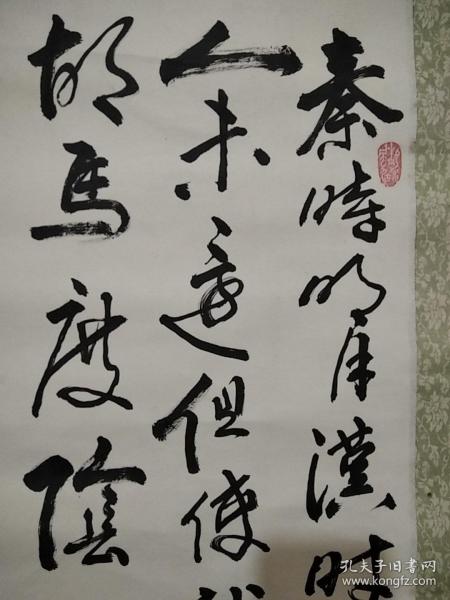 秦時明月漢時
人未還但使
胡馬度陰
孔夫子旧书网
www.kongfz.com